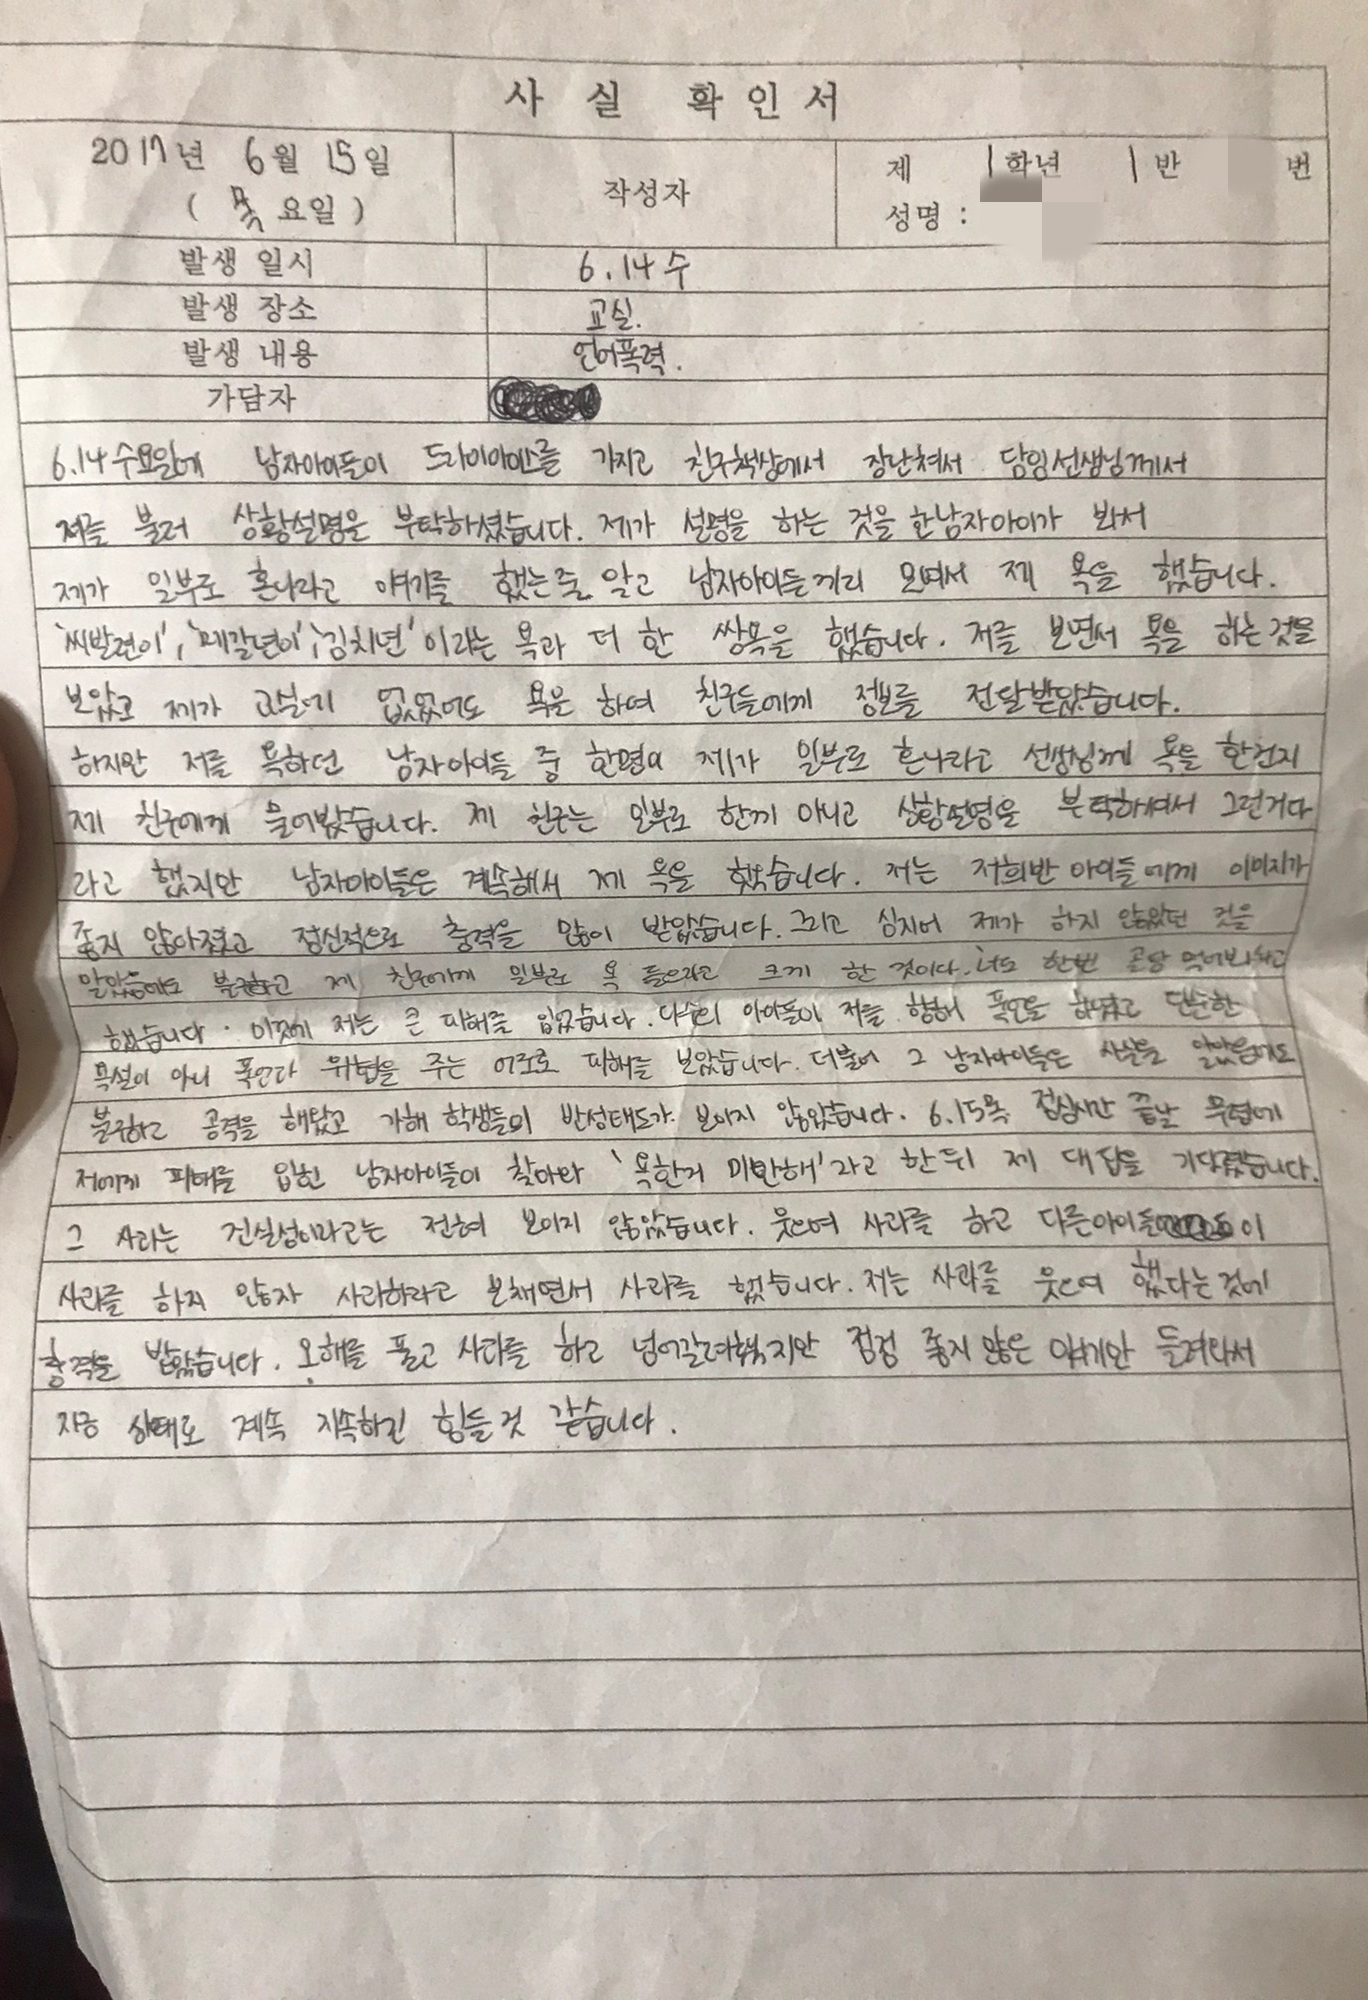 사 실 확 인 서
2017년 6월 15일
( 목요일 )
작성자
제 1학년 1반 번
성명 :
발생 일시 6.14 수
발생 장소 교실.
발생 내용 언어폭력.
가담자
6.14 수요일에 남자아이들이 드라이아이스를 가지고 친구책상에서 장난쳐서 담임선생님께서
저를 불러 상황설명을 부탁하셨습니다. 제가 설명을 하는 것을 한남자아이가 봐서
제가 일부로 혼나라고 얘기를 했는줄 알고 남자아이들끼리 모여서 제 욕을 했습니다.
'씨발련이', '제갈년이', '김치년' 이라는 욕과 더 한 쌍욕을 했습니다. 저를 보면서 욕을 하는것을
보았고 제가 교실에 없었어도 욕을 하여 친구들에게 정보를 전달받았습니다.
하지만 저를 욕하던 남자아이들 중 한명이 제가 일부로 혼나라고 선생님께 욕을 한건지
제 친구에게 물어봤습니다. 제 친구는 일부로 한게 아니고 상황설명을 부탁하셔서 그런거다
라고 했지만 남자아이들은 계속해서 제 욕을 했습니다. 저는 저희반 아이들에게 이미지가
좋지 않아졌고 정신적으로 충격을 많이 받았습니다. 그리고 심지어 제가 하지 않았던 것을
알았음에도 불구하고 제 친구에게 일부로 욕 들으라고 크게 한 것이다. 너도 한번 골탕 먹어봐라고
했습니다. 이것에 저는 큰 피해를 입었습니다. 다수의 아이들이 저를 향해 폭언을 하였고 단순한
욕설이 아니 폭언과 위협을 주는 어조로 피해를 보았습니다. 더불어 그 남자아이들은 사실을 알았음에도
불구하고 공격을 해왔고 가해 학생들의 반성태도가 보이지 않았습니다. 6.15목 점심시간 끝날 무렵에
저에게 피해를 입힌 남자아이들이 찾아와 '욕한거 미안해'라고 한뒤 제 대답을 기다렸습니다.
그 사과는 진실성이라고는 전혀 보이지 않았습니다. 웃으며 사과를 하고 다른아이들이
사과를 하지 않자 사과하라고 보채면서 사과를 했습니다. 저는 사과를 웃으며 했다는것에
충격을 받았습니다. 오해를 풀고 사과를 하고 넘어갈려했지만 점점 좋지 않은 얘기만 들려와서
지금 상태로 계속 지속하긴 힘들것 같습니다.